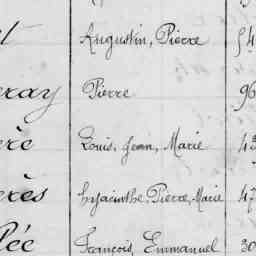 t Augustin, Pierre 54
eray Pierre 96
ère Louis, Jean, Marie 43
erès Hyacinthe, Pierre, Marie 47
lée François, Emmanuel 30